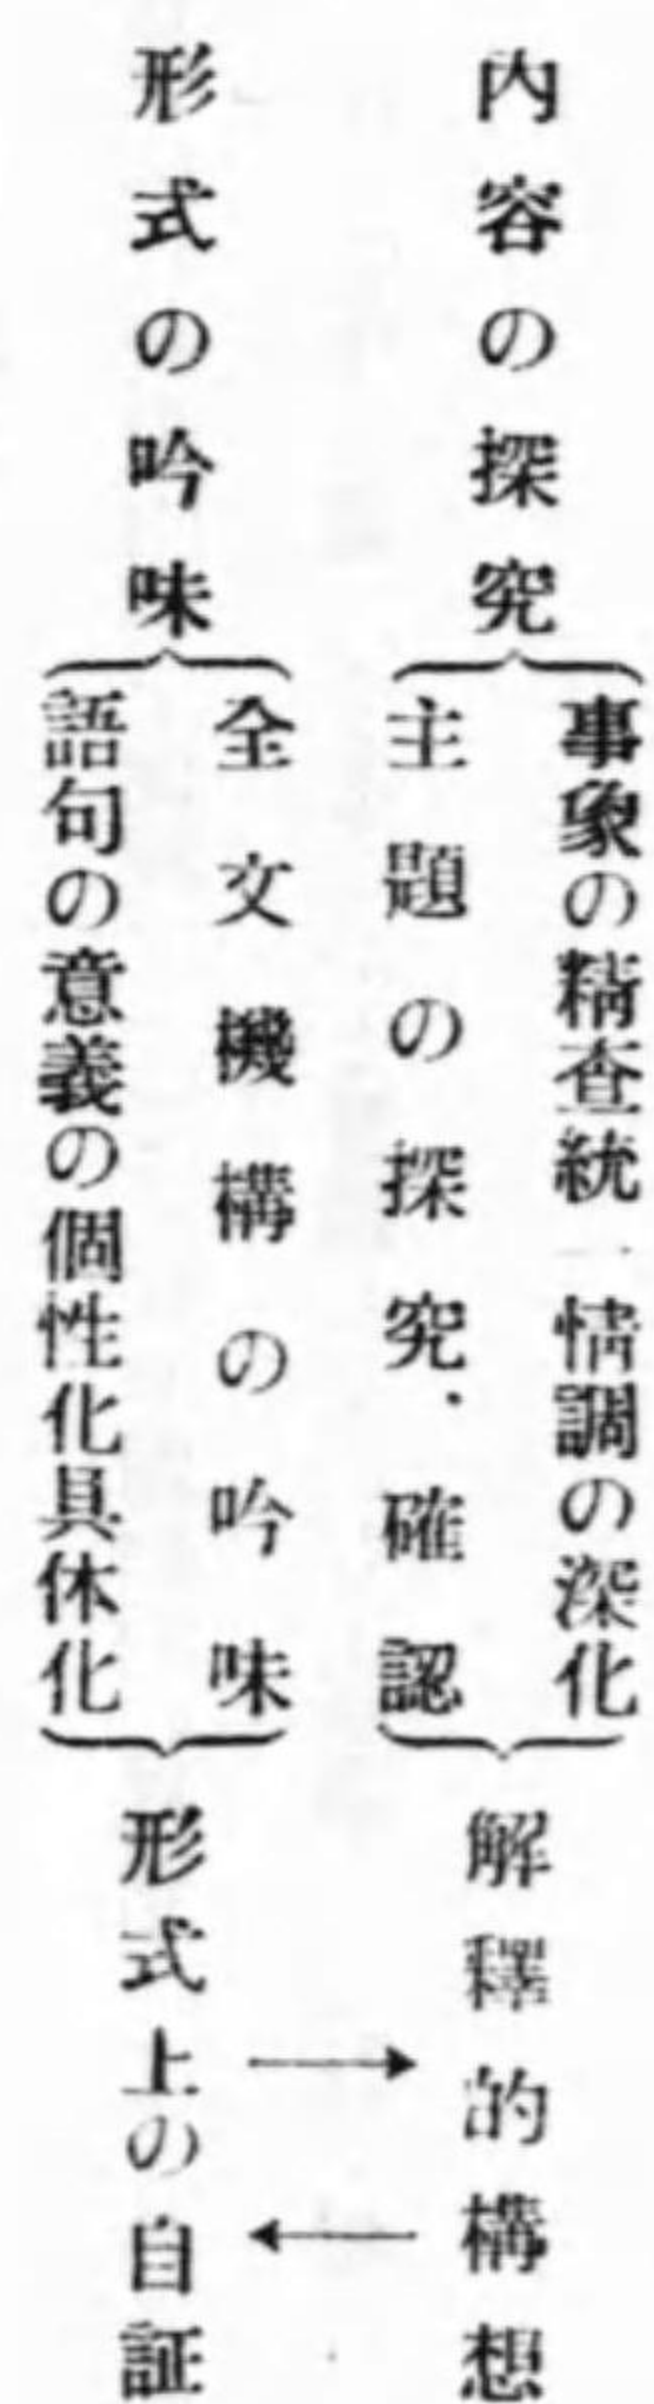 内容の探究
事象の精査統一情調の深化
主題の探究・確認
解釋的構想
形式の吟味
全文機構の吟味
語句の意義の個性化具体化
形式上の自証